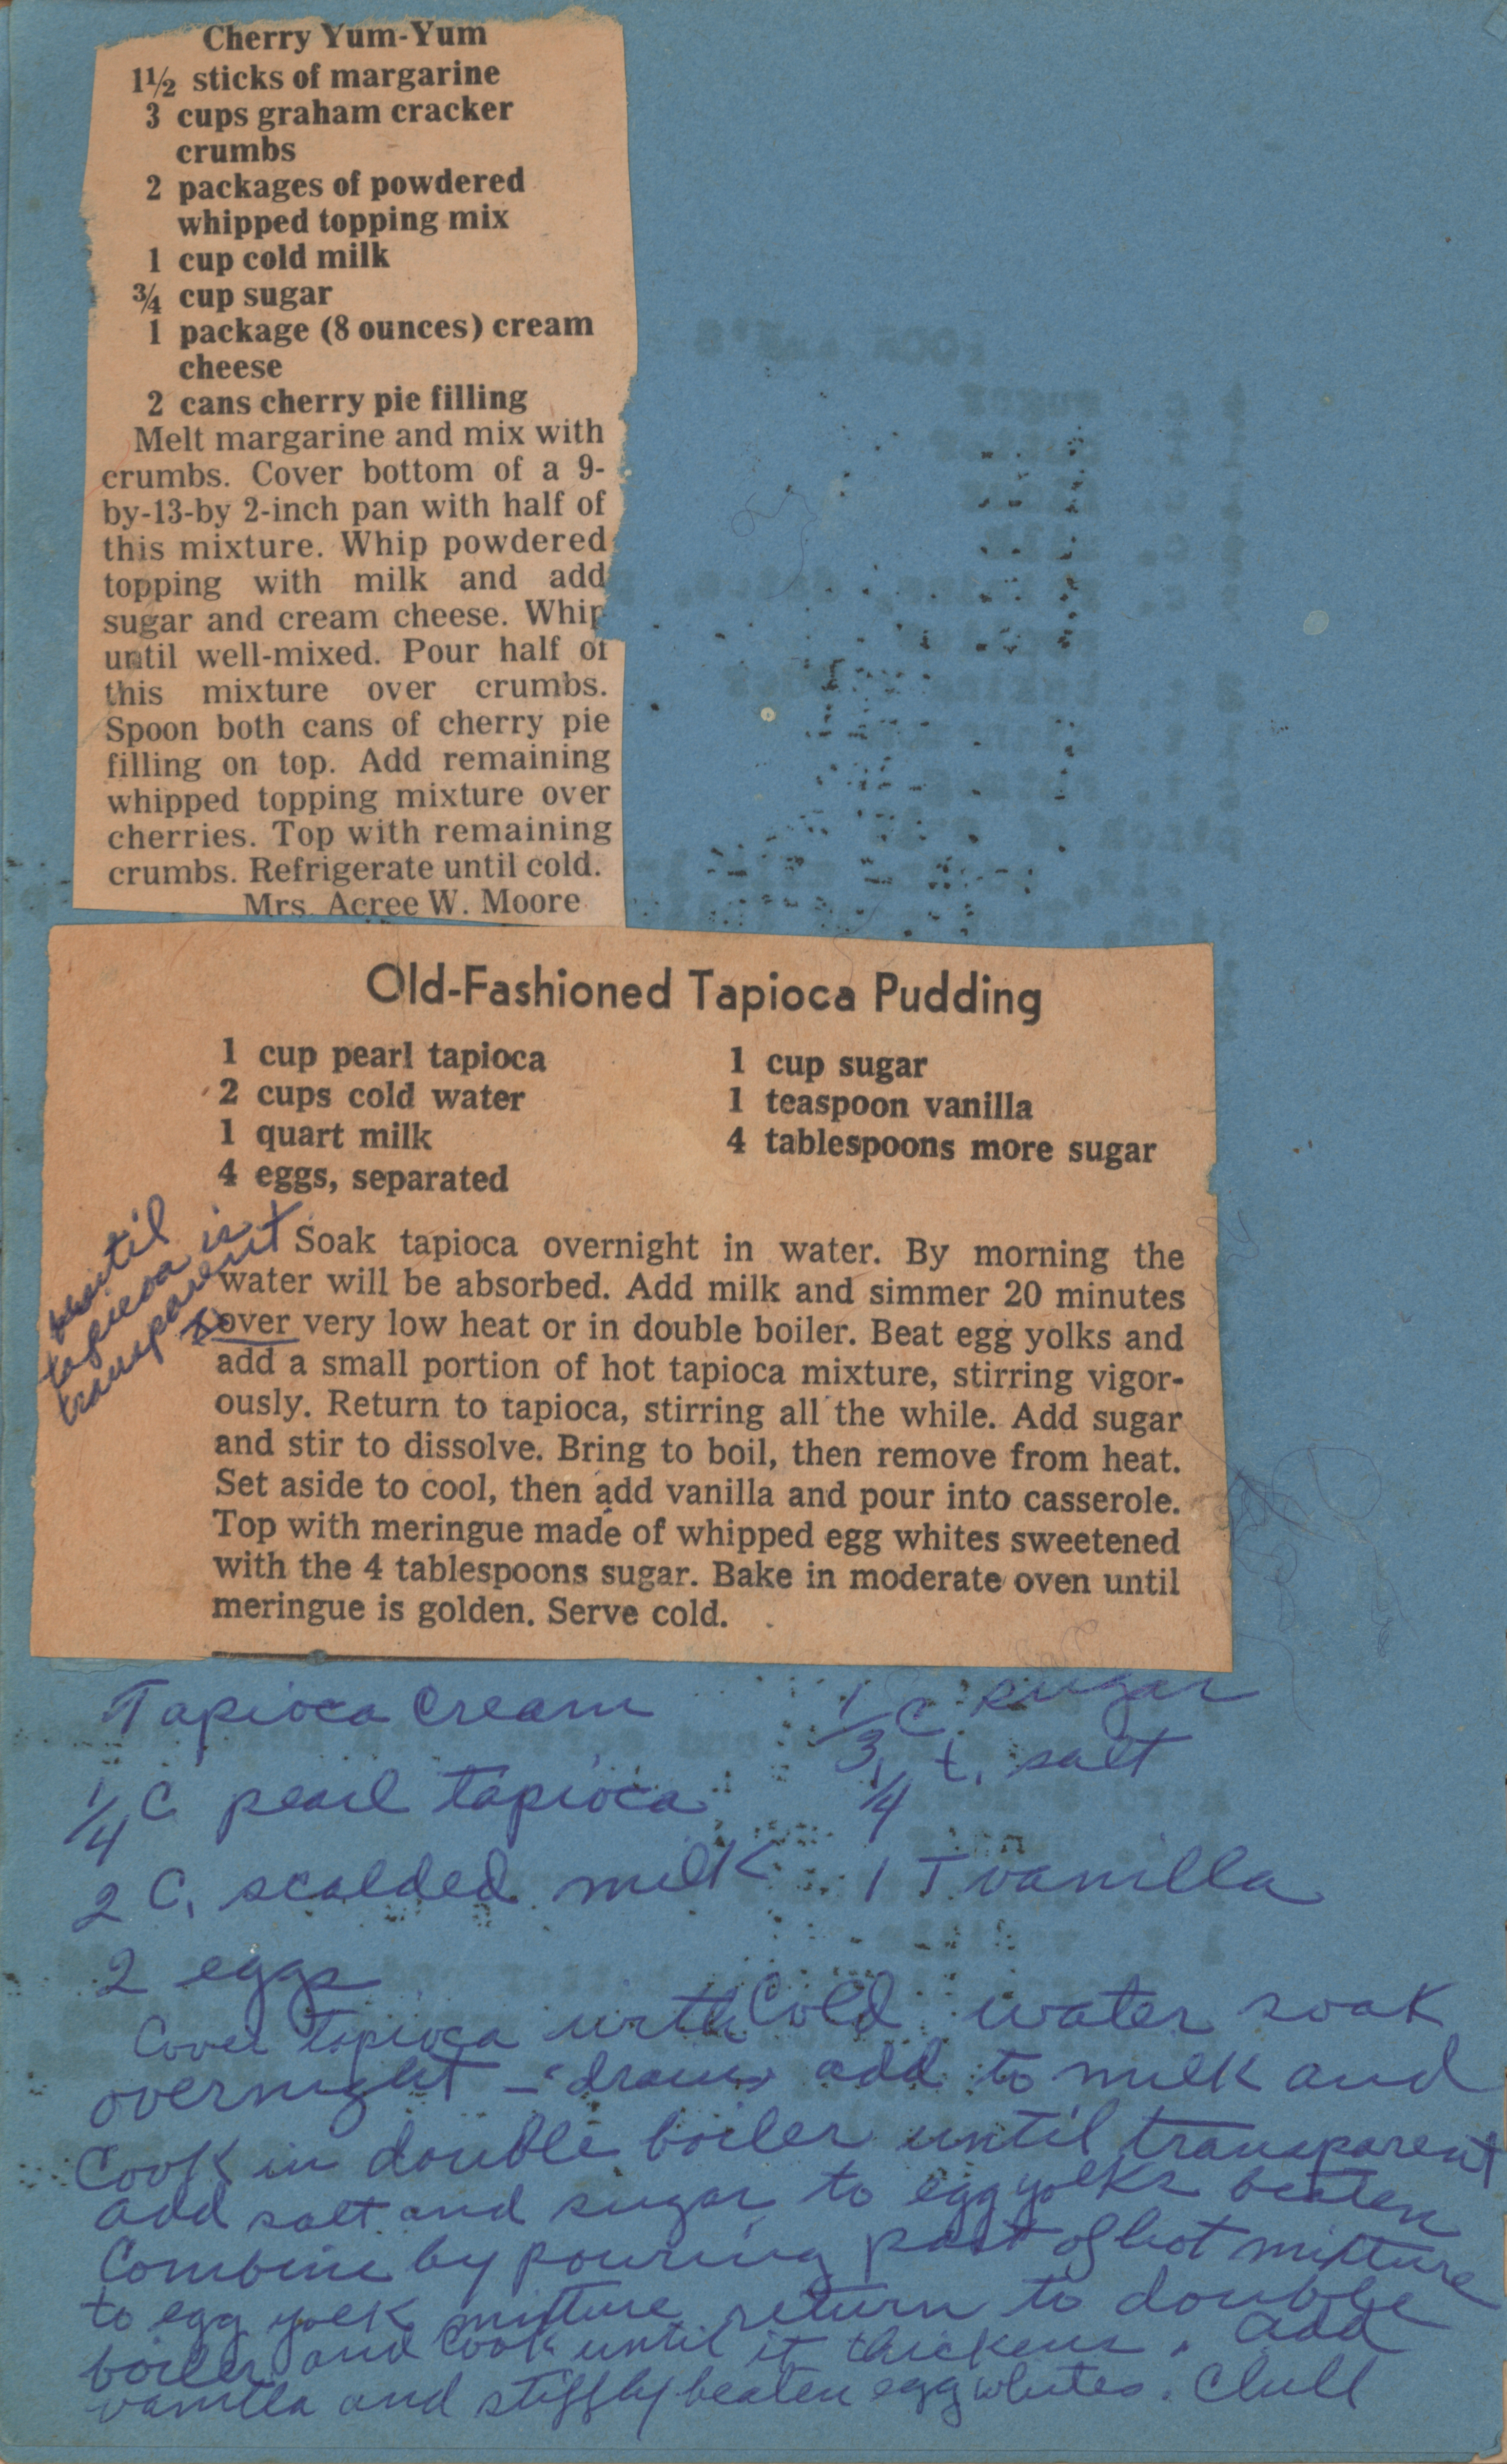 Cherry Yum-Yum
1½ sticks of margarine
3 cups graham cracker
crumbs
2 packages of powdered
whipped topping mix
1 cup cold milk
¾ cup sugar
1 package (8 ounces) cream
cheese
2 cans cherry pie filling
Melt margarine and mix with
crumbs. Cover bottom of a 9-
by-13-by 2-inch pan with half of
this mixture. Whip powdered
topping with milk and add
sugar and cream cheese. Whip
until well-mixed. Pour half of
this mixture over crumbs.
Spoon both cans of cherry pie
filling on top. Add remaining
whipped topping mixture over
cherries. Top with remaining
crumbs. Refrigerate until cold.
Mrs. Acree W. Moore
Old-Fashioned Tapioca Pudding
1 cup pearl tapioca
2 cups cold water
1 quart milk
4 eggs, separated
1 cup sugar
1 teaspoon vanilla
4 tablespoons more sugar
until
tapioca is
transparent
Soak tapioca overnight in water. By morning the
water will be absorbed. Add milk and simmer 20 minutes
over very low heat or in double boiler. Beat egg yolks and
add a small portion of hot tapioca mixture, stirring vigor-
ously. Return to tapioca, stirring all the while. Add sugar
and stir to dissolve. Bring to boil, then remove from heat.
Set aside to cool, then add vanilla and pour into casserole.
Top with meringue made of whipped egg whites sweetened
with the 4 tablespoons sugar. Bake in moderate oven until
meringue is golden. Serve cold.
Tapioca Cream
1/4 C pearl tapioca
2 C. scalded milk
2 eggs
1/3 C sugar
1/4 t. salt
1 T vanilla
Cover tapioca with Cold water soak
overnight - drain add to milk and
Cook in double boiler until transparent
add salt and sugar to egg yolks beaten
Combine by pouring part of hot mixture
to egg yolk mixture return to double
boiler and Cook until it thickens. add
vanilla and stiffly beaten egg whites. Chill